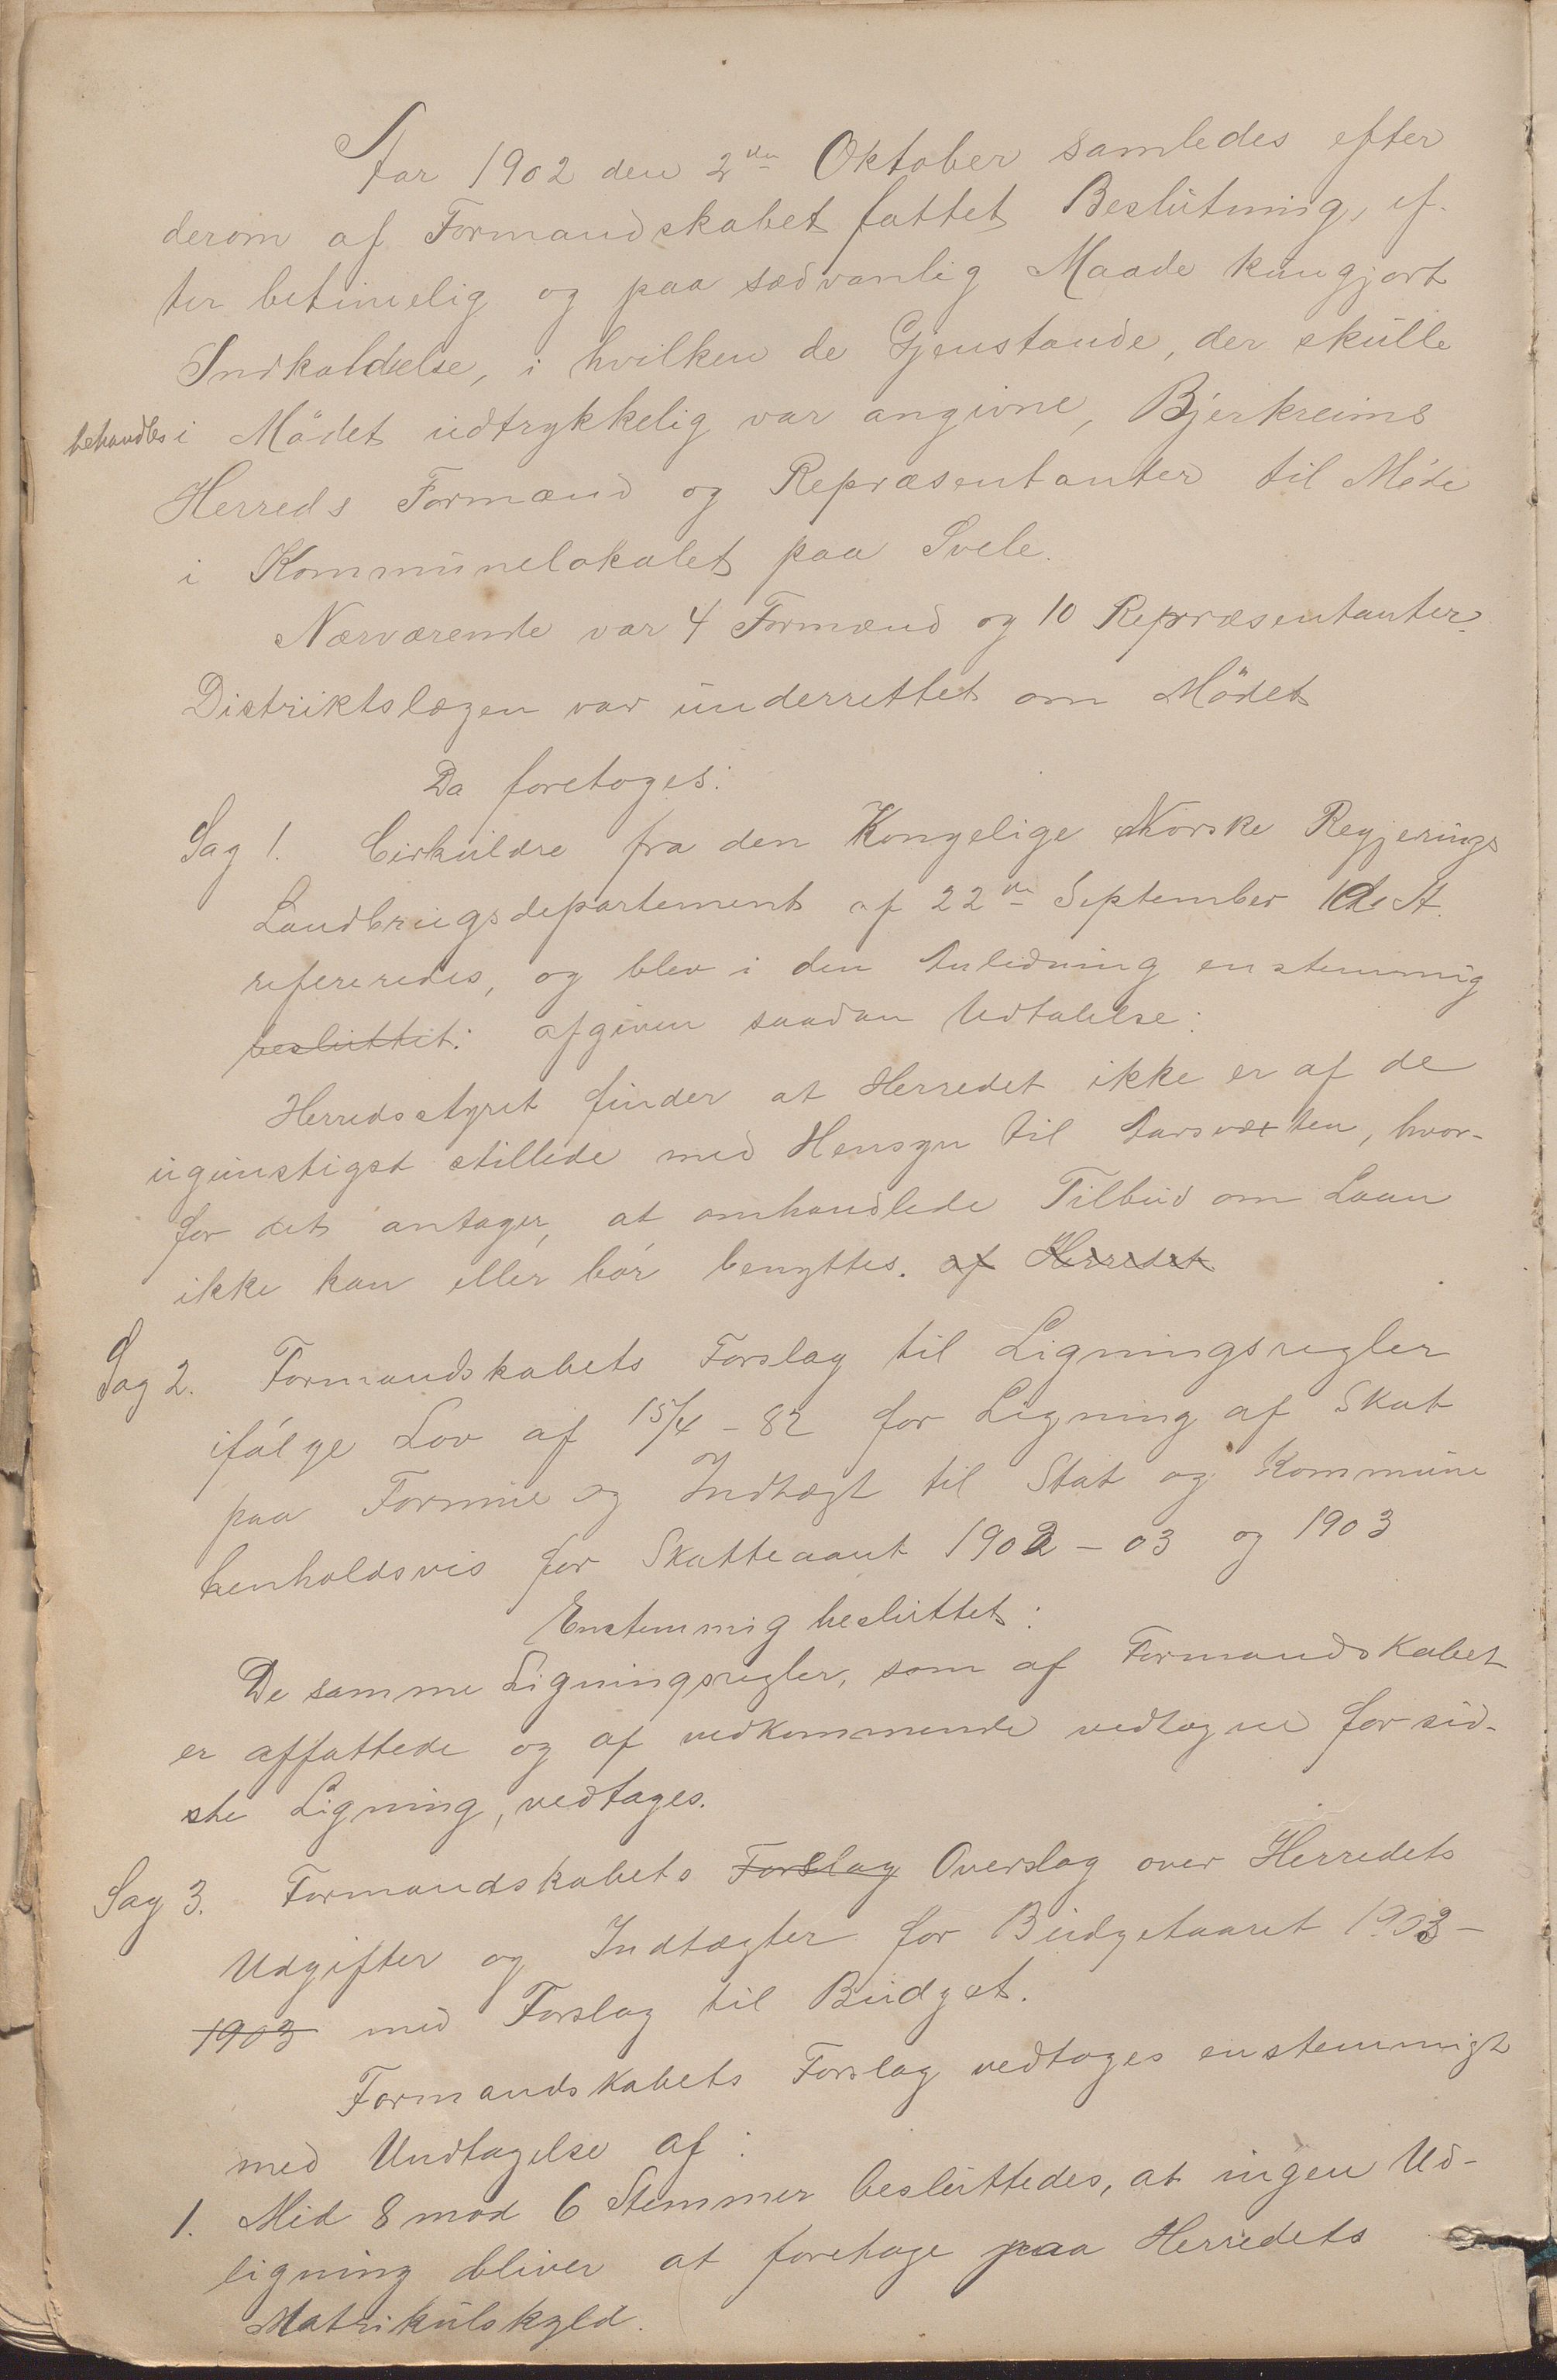 Aar 1902 den 2den Oktober samledes efter
derom af Formandskabet fattet Beslutning, ef-
ter betimelig og paa sædvanlig Maade kungjort
Indkaldelse, i hvilken de Gjenstande, der skulle
behandles i Mödet udtrykkelig var angivne, Bjerkreims
Herreds Formænd og Repræsentanter til Möde
i Kommunelokalet paa Svele.
Nærværende var 4 Formænd og 10 Repræsentanter.
Distriktslægen var underrettet om Mödet
Da foretoges:
Sag 1. Cirkulære fra den Kongelige Norske Regjerings
Landbrugsdepartement af 22de September d. A.
refereredes, og blev i den Anledning enstemmig
besluttet: afgiven saadan Udtalelse:
Herredsstyret finder at Herredet ikke er af de
ugunstigst stillede med Hensyn til Aarsvæxten, hvor-
for det antager, at omhandlede Tilbud om Laan
ikke kan eller bör benyttes. af Herredet
Sag 2. Formandskabets Forslag til Ligningsregler
ifölge Lov af 15/4 - 82 for Ligning af Skat
paa Formue og Indtægt til Stat og Kommune
henholdsvis for Skatteaaret 1902 - 03 og 1903
Enstemmig besluttet:
De samme Ligningsregler, som af Formandskabet
er affattede og af vedkommende vedtagne for sid-
ste Ligning, vedtages.
Sag 3. Formandskabets Forslag Overslag over Herredets
Udgifter og Indtægter for Budgetaaret 1903 -
1903 med Forslag til Budget.
Formandskabets Forslag vedtoges enstemmigt
med Undtagelse af:
1. Med 8 mod 6 Stemmer besluttedes, at ingen Ud-
ligning bliver at foretage paa Herredets
Matrikulskyld.